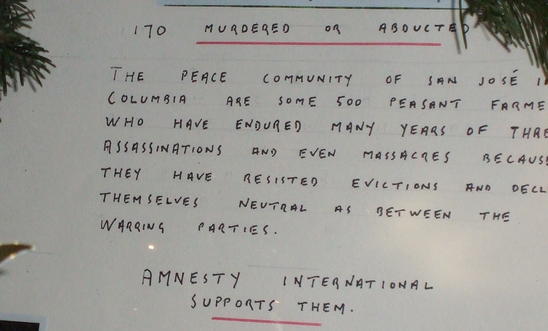 170 MURDERED OR ABDUCTED
THE PEACE COMMUNITY OF SAN JOSÉ
COLUMBIA ARE SOME 500 PEASANT
WHO HAVE ENDURED MANY YEARS OF
ASSASSINATIONS AND EVEN MASSACRES BECAUSE
THEY HAVE RESISTED EVICTIONS AND
THEMSELVES NEUTRAL AS BETWEEN THE
WARRING PARTIES.
AMNESTY INTERNATIONAL
SUPPORTS THEM.